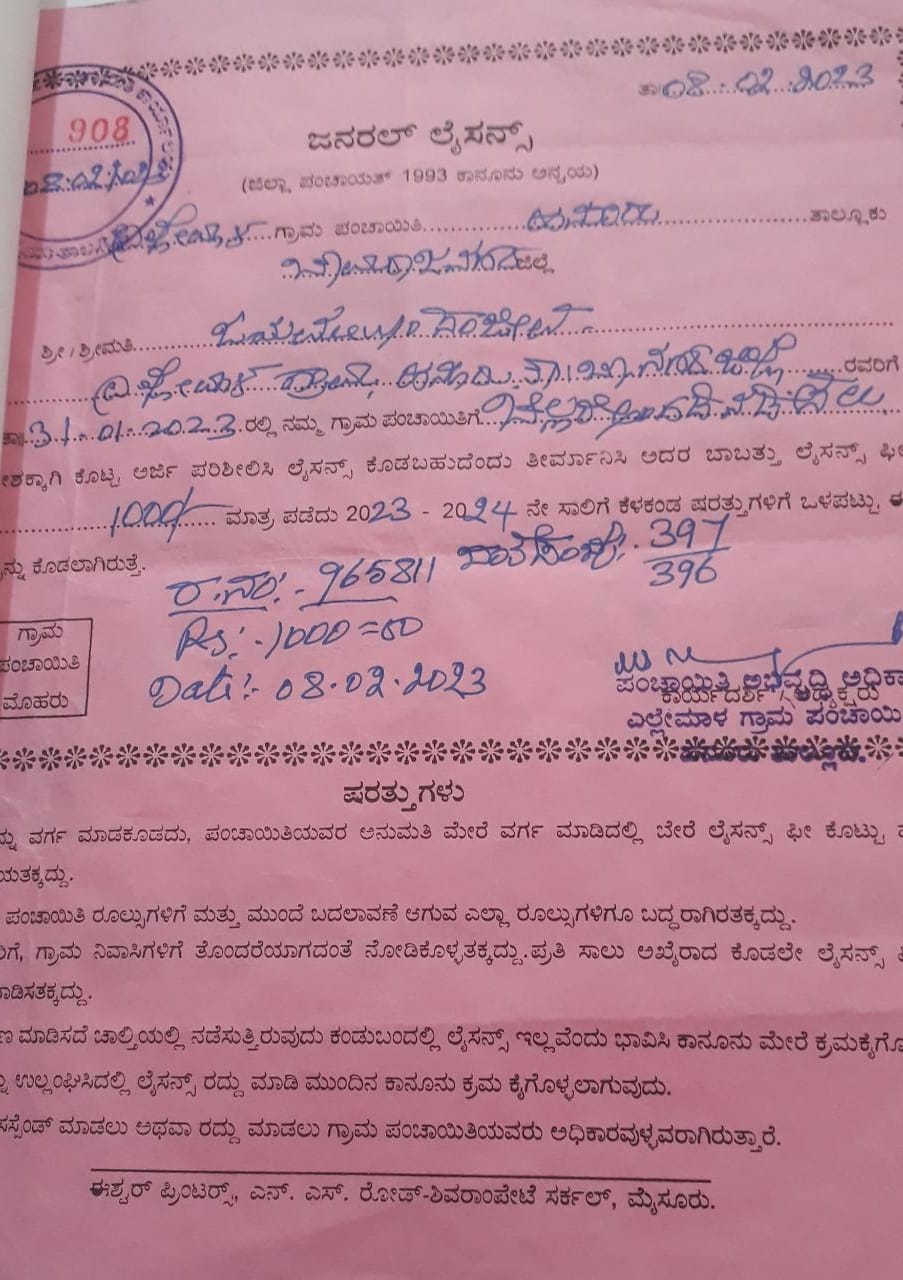 ತಾ 08.02.2023
908
08.02.2023
ಜನರಲ್ ಲೈಸನ್ಸ್
(ಜಿಲ್ಲಾ ಪಂಚಾಯತ್ 1993 ಕಾನೂನು ಅನ್ವಯ)
ಗ್ರಾಮ ಪಂಚಾಯಿತಿ ಹನೂರು ತಾಲ್ಲೂಕು
ಚಾಮರಾಜನಗರ ಜಿಲ್ಲೆ
ಶ್ರೀ / ಶ್ರೀಮತಿ
ಗ್ರಾಮ, ಹನೂರು ತಾ. ರವರಿಗೆ
ತಾ॥ 31.01.2023 ರಲ್ಲಿ ನಮ್ಮ ಗ್ರಾಮ ಪಂಚಾಯಿತಿಗೆ
ಶಕ್ಕಾಗಿ ಕೊಟ್ಟ ಅರ್ಜಿ ಪರಿಶೀಲಿಸಿ ಲೈಸನ್ಸ್ ಕೊಡಬಹುದೆಂದು ತೀರ್ಮಾನಿಸಿ ಅದರ ಬಾಬತ್ತು ಲೈಸನ್ಸ್ ಫೀ
1000/- ಮಾತ್ರ ಪಡೆದು 2023 - 2024 ನೇ ಸಾಲಿಗೆ ಕೆಳಕಂಡ ಷರತ್ತುಗಳಿಗೆ ಒಳಪಟ್ಟು ಈ
ನ್ನು ಕೊಡಲಾಗಿರುತ್ತೆ.
ರ.ನಂ:- 965811 397/396
Rs:- 1000=00
Date:- 08.02.2023
ಗ್ರಾಮ
ಪಂಚಾಯಿತಿ
ಮೊಹರು
ಪಂಚಾಯಿತಿ ಅಭಿವೃದ್ಧಿ ಅಧಿಕಾ
ಕಾರ್ಯದರ್ಶಿ / ಅಧ್ಯಕ್ಷರು
ಎಲ್ಲೇಮಾಳ ಗ್ರಾಮ ಪಂಚಾಯಿ
ಹನೂರು ತಾಲ್ಲೂಕು.
ಷರತ್ತುಗಳು
ನ್ನು ವರ್ಗ ಮಾಡಕೂಡದು, ಪಂಚಾಯಿತಿಯವರ ಅನುಮತಿ ಮೇರೆ ವರ್ಗ ಮಾಡಿದಲ್ಲಿ ಬೇರೆ ಲೈಸನ್ಸ್ ಫೀ ಕೊಟ್ಟು
ಯತಕ್ಕದ್ದು.
ಪಂಚಾಯಿತಿ ರೂಲ್ಸುಗಳಿಗೆ ಮತ್ತು ಮುಂದೆ ಬದಲಾವಣೆ ಆಗುವ ಎಲ್ಲಾ ರೂಲ್ಸುಗಳಿಗೂ ಬದ್ಧರಾಗಿರತಕ್ಕದ್ದು.
ಗೆ, ಗ್ರಾಮ ನಿವಾಸಿಗಳಿಗೆ ತೊಂದರೆಯಾಗದಂತೆ ನೋಡಿಕೊಳ್ಳತಕ್ಕದ್ದು. ಪ್ರತಿ ಸಾಲು ಅಖೈರಾದ ಕೊಡಲೇ ಲೈಸನ್ಸ್
ಾಡಿಸತಕ್ಕದ್ದು.
ಣ ಮಾಡಿಸದೆ ಚಾಲ್ತಿಯಲ್ಲಿ ನಡೆಸುತ್ತಿರುವುದು ಕಂಡುಬಂದಲ್ಲಿ ಲೈಸನ್ಸ್ ಇಲ್ಲವೆಂದು ಭಾವಿಸಿ ಕಾನೂನು ಮೇರೆ ಕ್ರಮಕೈಗೊ
ು ಉಲ್ಲಂಘಿಸಿದಲ್ಲಿ ಲೈಸನ್ಸ್ ರದ್ದು ಮಾಡಿ ಮುಂದಿನ ಕಾನೂನು ಕ್ರಮ ಕೈಗೊಳ್ಳಲಾಗುವುದು.
ಸಸ್ಪೆಂಡ್ ಮಾಡಲು ಅಥವಾ ರದ್ದು ಮಾಡಲು ಗ್ರಾಮ ಪಂಚಾಯಿತಿಯವರು ಅಧಿಕಾರವುಳ್ಳವರಾಗಿರುತ್ತಾರೆ.
ಈಶ್ವರ್ ಪ್ರಿಂಟರ್ಸ್, ಎನ್. ಎಸ್. ರೋಡ್-ಶಿವರಾಂಪೇಟೆ ಸರ್ಕಲ್, ಮೈಸೂರು.